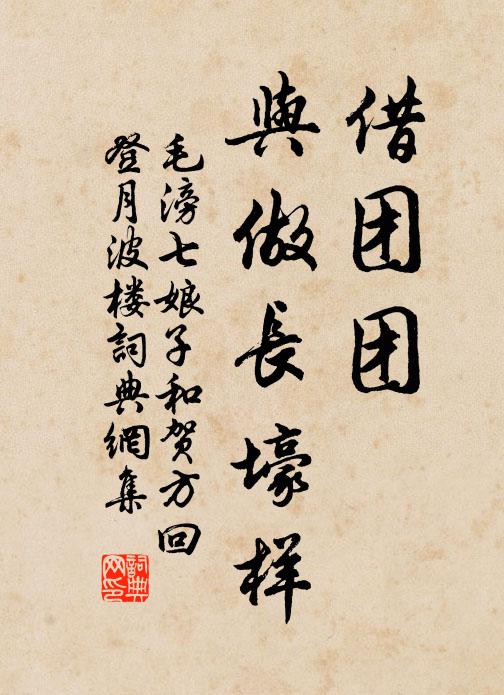 借团团
與做長壕样
毛滂七娘子和贺方回
登月波楼詞典網集
詞典网印